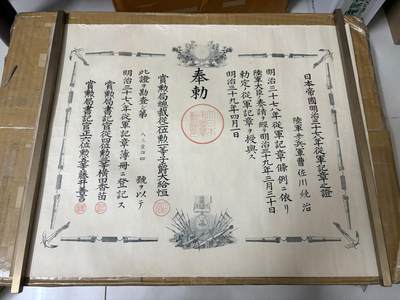 日本帝國明治三十七八年從軍記章之證
陸軍歩兵軍曹佐川統治
明治三十七八年從軍記章條例ニ依リ
陸軍大臣ノ奏請ヲ經テ明治三十九年三月三十日
勅定ノ從軍記章ヲ授與ス
明治三十九年四月一日
奉勅
賞勲局總裁從二位勲一等子爵大給恒
此證ヲ勘査シ第 號ヲ以テ
明治三十七八年從軍記章簿冊ニ登記ス
賞勲局書記官從四位勲三等横田香苗
賞勲局書記官正六位勲 等藤井善言